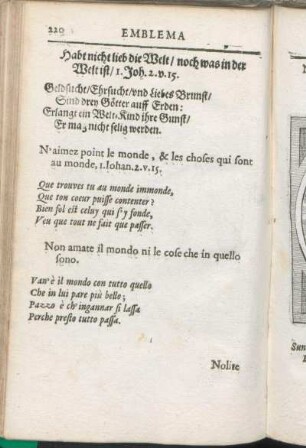 220 EMBLEMA
Habt nicht lieb die Welt / noch was in der
Welt ist / 1. Joh. 2. v. 15.
Geldsucht / Ehrsucht / vnd Liebes Brunst /
Sind drey Götter auff Erden:
Erlangt ein Welt-Kind ihre Gunst /
Er mag nicht selig werden.
N'aimez point le monde, & les choses qui sont
au monde, 1. Iohan. 2. v. 15.
Que trouves tu au monde immonde,
Que ton coeur puisse contenter ?
Bien fol est celuy qui s'y fonde,
Veu que tout ne fait que passer.
Non amate il mondo ni le cose che in quello
sono.
Van' è il mondo con tutto quello
Che in lui pare più bello;
Pazzo è ch'ingannar si lassa
Perche presto tutto passa.
Nolite